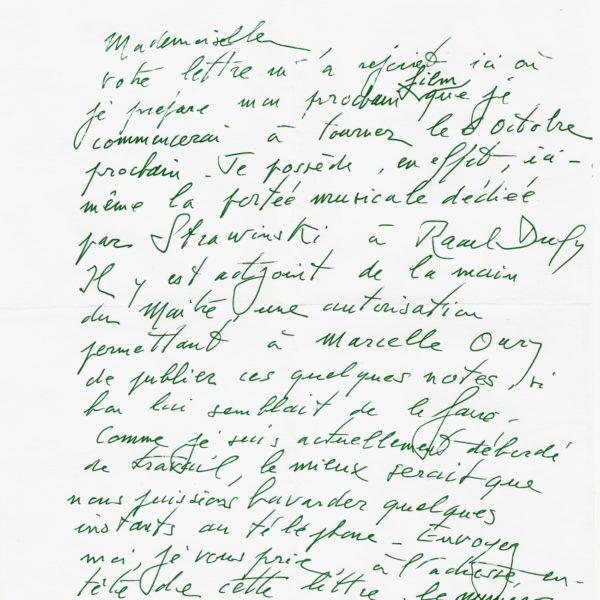 Mademoiselle
votre lettre m'a rejoint ici où
film
je prépare mon prochain que je
commencerai à tourner le 8 octobre
prochain - Je possède, en effet, ici -
même la portée musicale dédiée
par Strawinski à Raoul Dufy
Il y est adjoint de la main
du Maître, une autorisation
permettant à Marcelle Oury
de publier ces quelques notes, si
bon lui semblait de le faire -
Comme je suis actuellement débordé
de travail, le mieux serait que
nous puissions bavarder quelques
instants au téléphone - Envoyez
moi, je vous prie, à l'adresse en-
tête de cette lettre, le